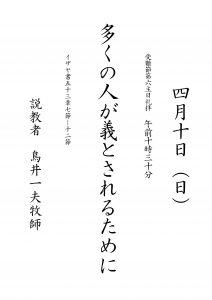 四月十日（日）
受難節第六主日礼拝　午前十時三十分
多くの人が義とされるために
イザヤ書五十三章七節ー十二節
説教者　鳥井一夫牧師